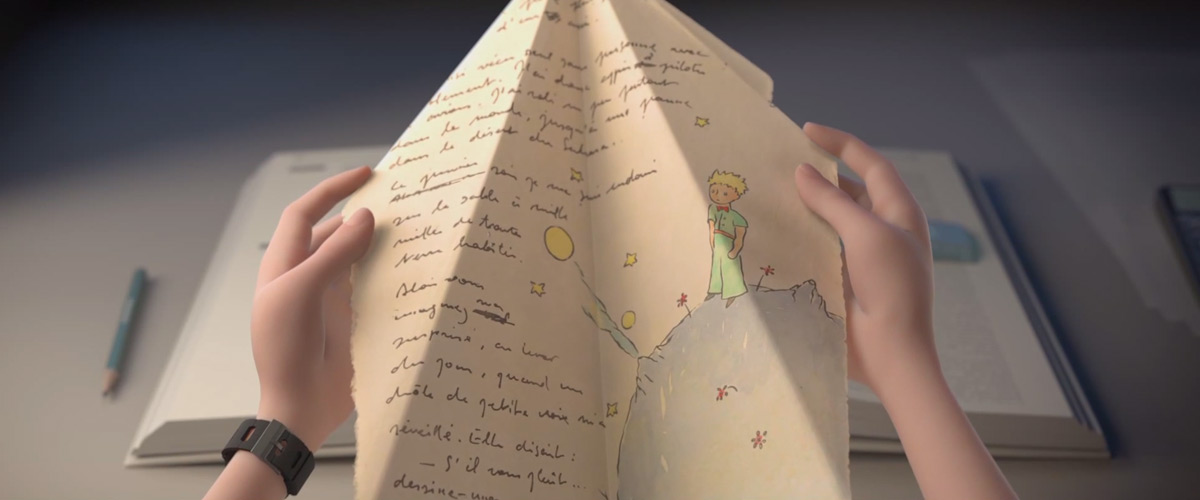 vécu seul sans personne avec
J'ai donc appris à piloter
avions. J'ai volé un peu partout
dans le monde, jusqu'à une panne
dans le désert du Sahara.
Le premier soir je me suis endormi
sur le sable à mille
mille de toute
terre habitée.
Alors vous
imaginez ma
surprise, au lever
du jour, quand une
drôle de petite voix m'a
réveillé. Elle disait :
— S'il vous plaît...
dessine-moi